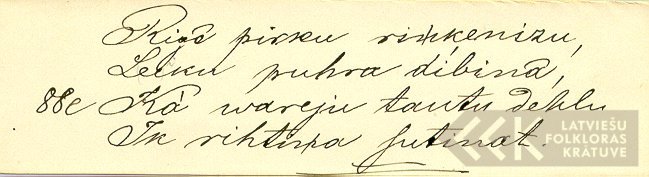 Rigê pirku riņķenizu,
Leeku puhra dibinâ,
88e Kà wareju tautu dehlu
Ik rihtiņa ſutinat.
LATVIEŠU
FOLKLORAS
KRĀTUVE